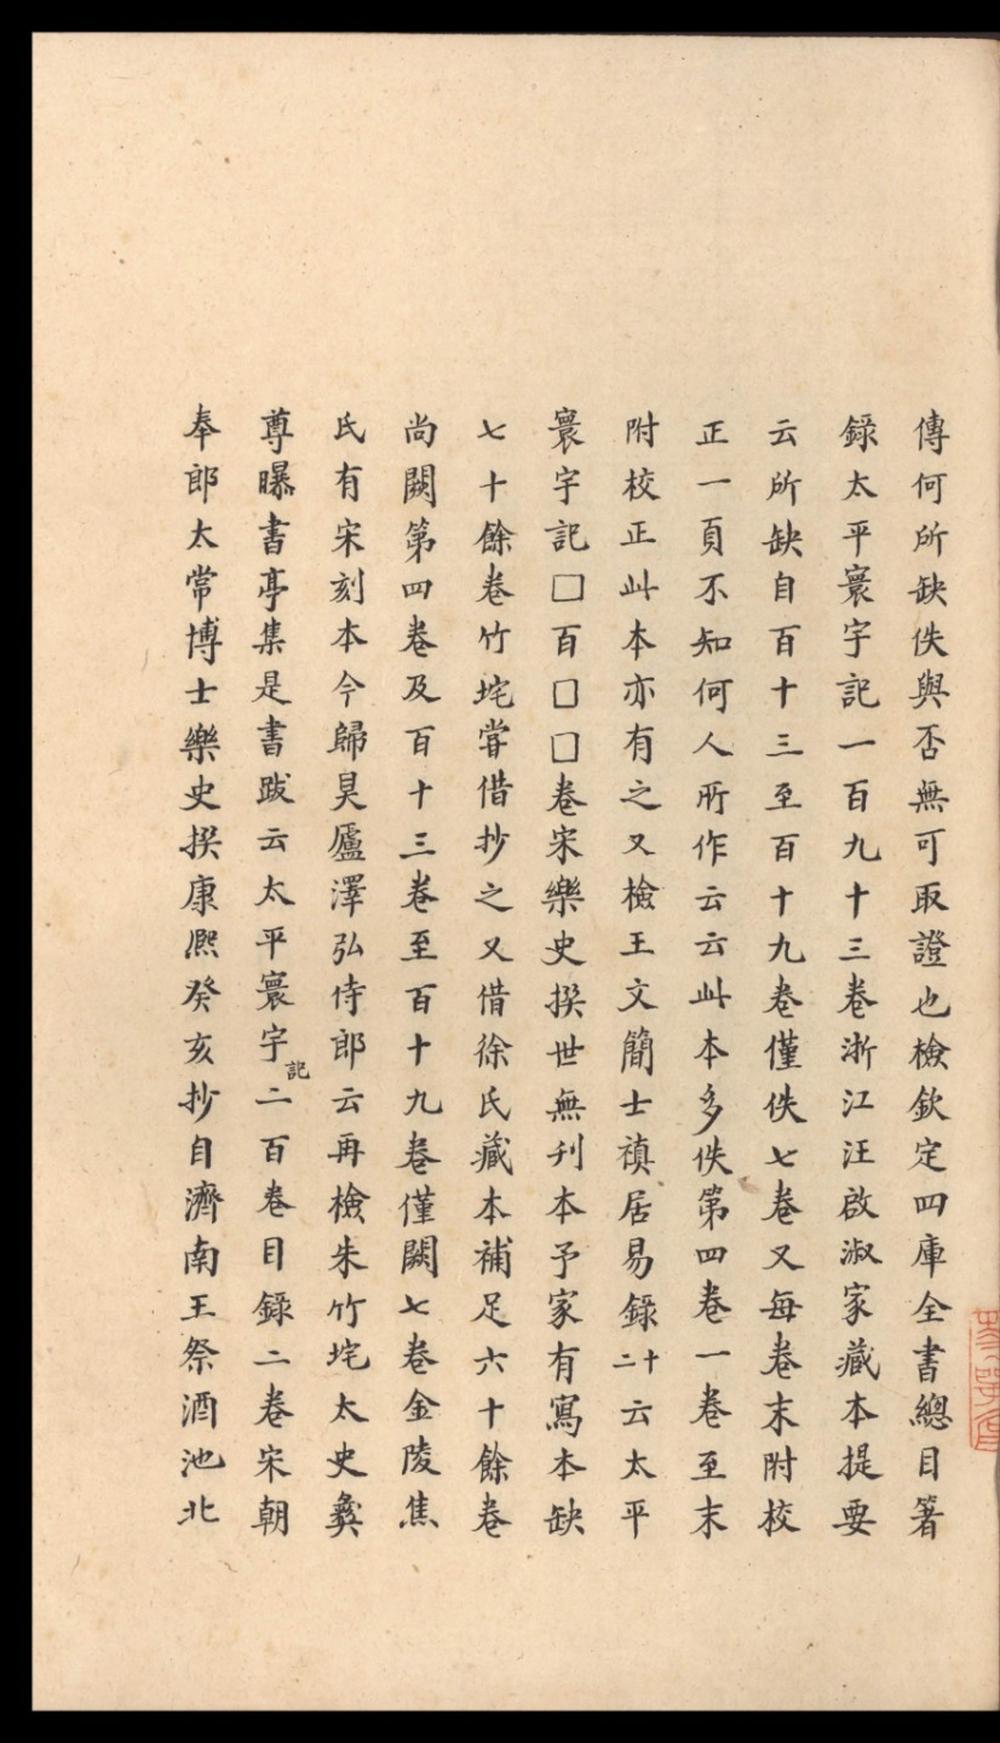 傳何所缺佚與否無可取證也檢欽定四庫全書總目著
錄太平寰宇記一百九十三卷浙江汪啟淑家藏本提要
云所缺自百十三至百十九卷僅佚七卷又每卷末附校
正一頁不知何人所作云云此本多佚第四卷一卷至末
附校正此本亦有之又檢王文簡士禎居易錄二十云太平
寰宇記□百□□卷宋樂史撰世無刊本予家有寫本缺
七十餘卷竹垞嘗借抄之又借徐氏藏本補足六十餘卷
尚闕第四卷及百十三卷至百十九卷僅闕七卷金陵焦
氏有宋刻本今歸昊廬澤弘侍郎云再檢朱竹垞太史彝
尊曝書亭集是書跋云太平寰宇記二百卷目錄二卷宋朝
奉郎太常博士樂史撰康熙癸亥抄自濟南王祭酒池北